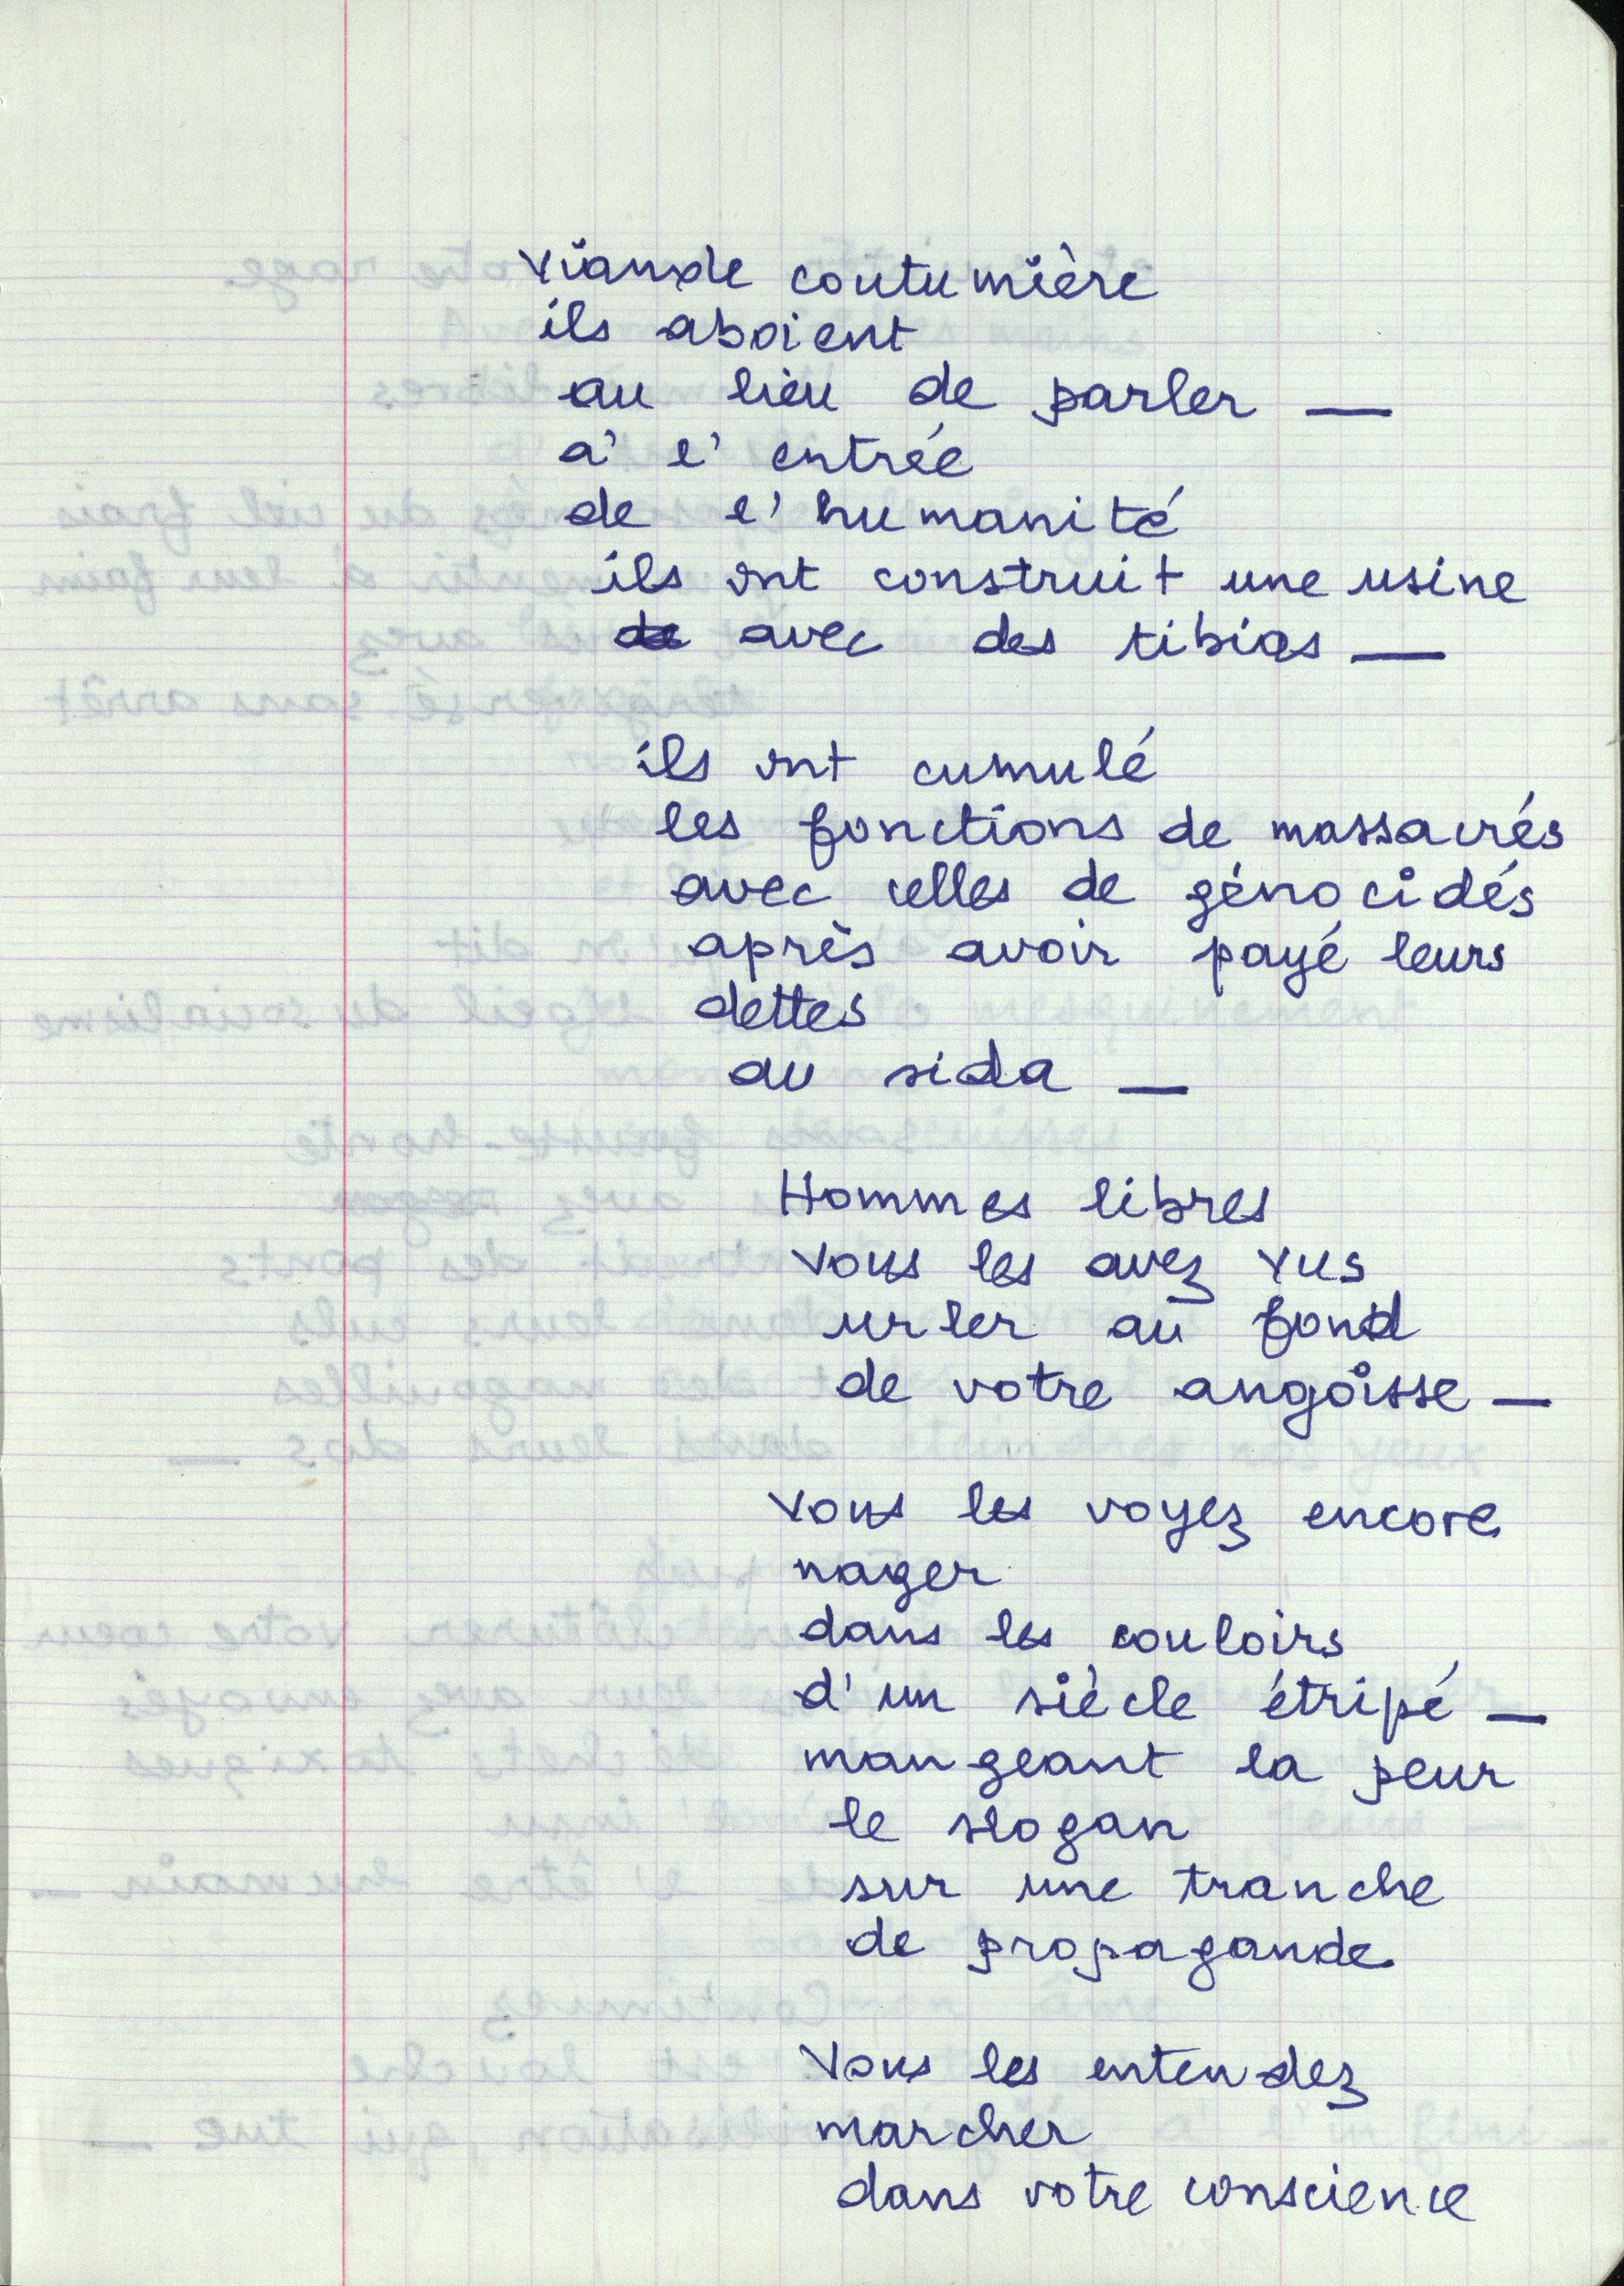 viande coutumière
ils aboient
au lieu de parler —
à l'entrée
de l'humanité
ils ont construit une usine
de avec des tibias —
ils ont cumulé
les fonctions de massacrés
avec celles de génocidés
après avoir payé leurs
dettes
au sida —
Hommes libres
vous les avez vus
urler au fond
de votre angoisse —
vous les voyez encore
nager
dans les couloirs
d'un siècle étripé —
mangeant la peur
le slogan
sur une tranche
de propagande
Vous les entendez
marcher
dans votre conscience